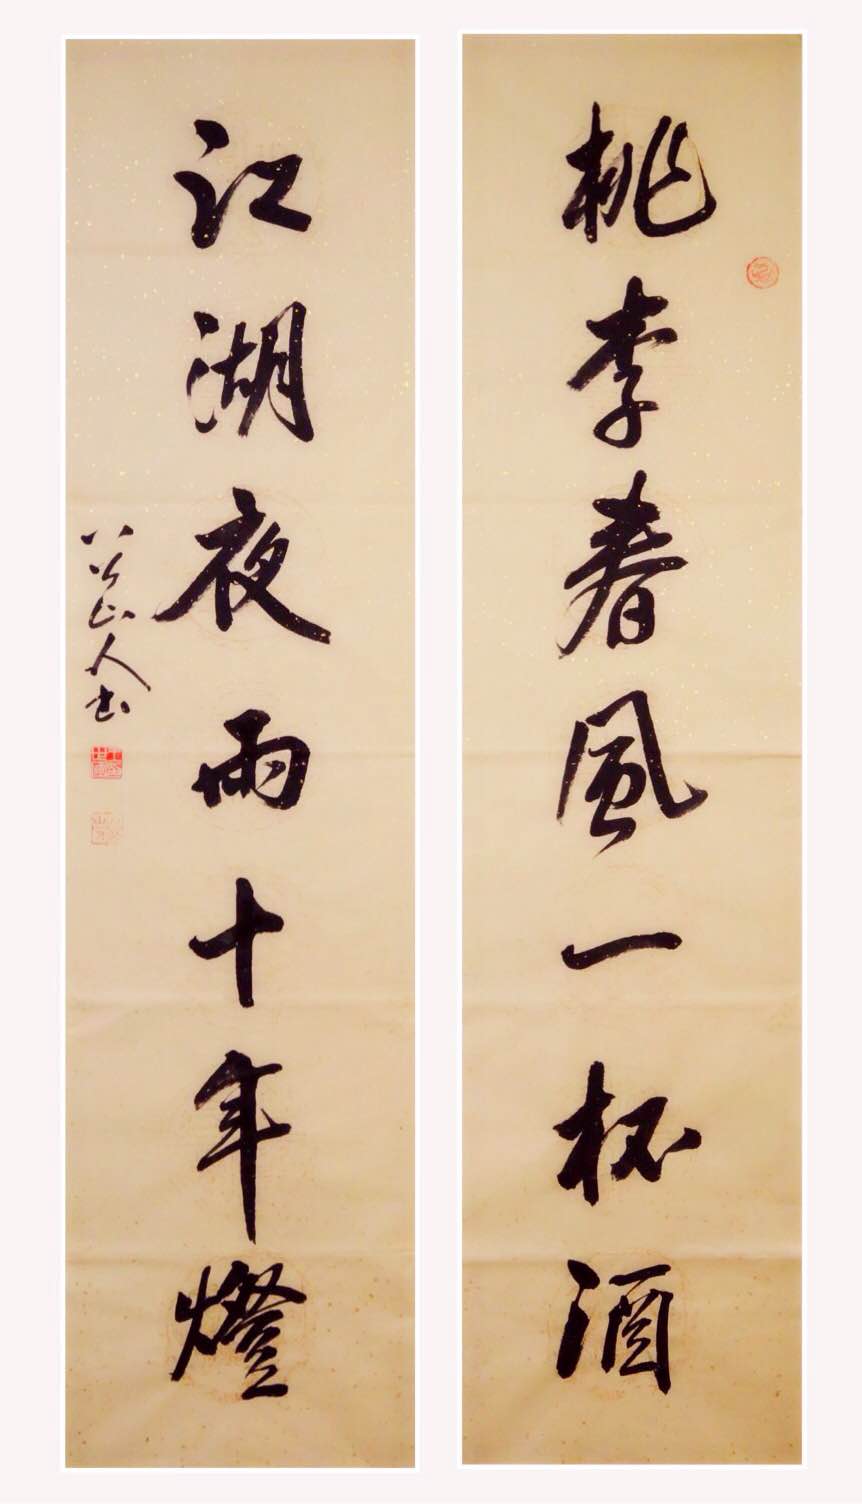 桃李春風一杯酒
江湖夜雨十年燈
八公山人书